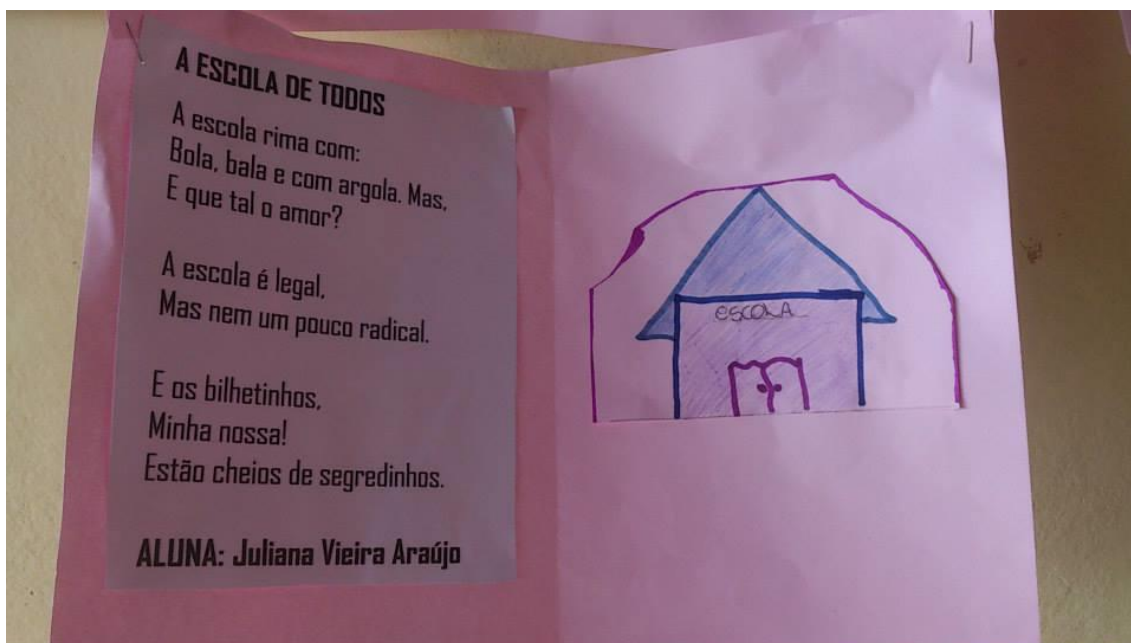 A ESCOLA DE TODOS
A escola rima com:
Bola, bala e com argola. Mas,
E que tal o amor?
A escola é legal,
Mas nem um pouco radical.
E os bilhetinhos,
Minha nossa!
Estão cheios de segredinhos.
ALUNA: Juliana Vieira Araújo
ESCOLA